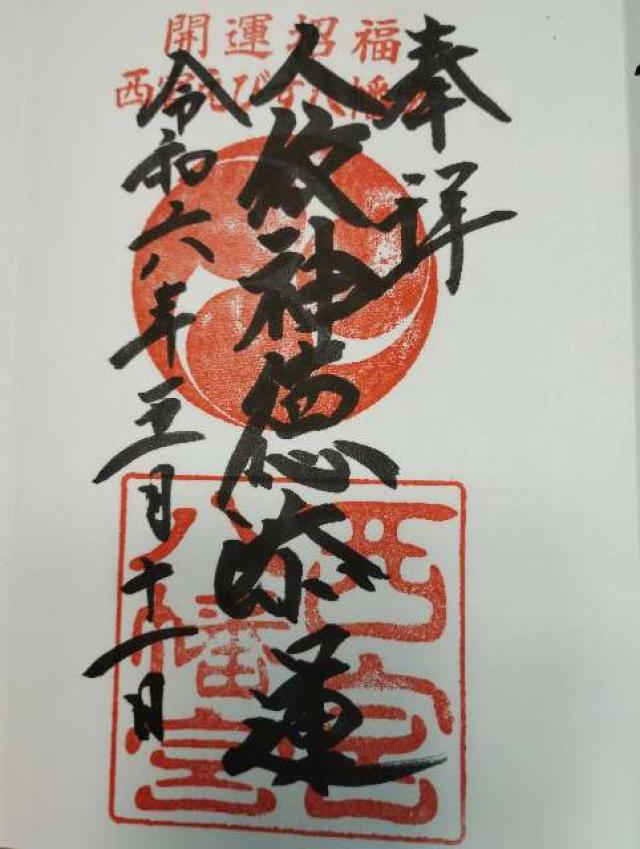 開運招福
西宮えびす八幡
奉拝
人依神徳添運
令和六年三月十一日
西宮
八幡宮